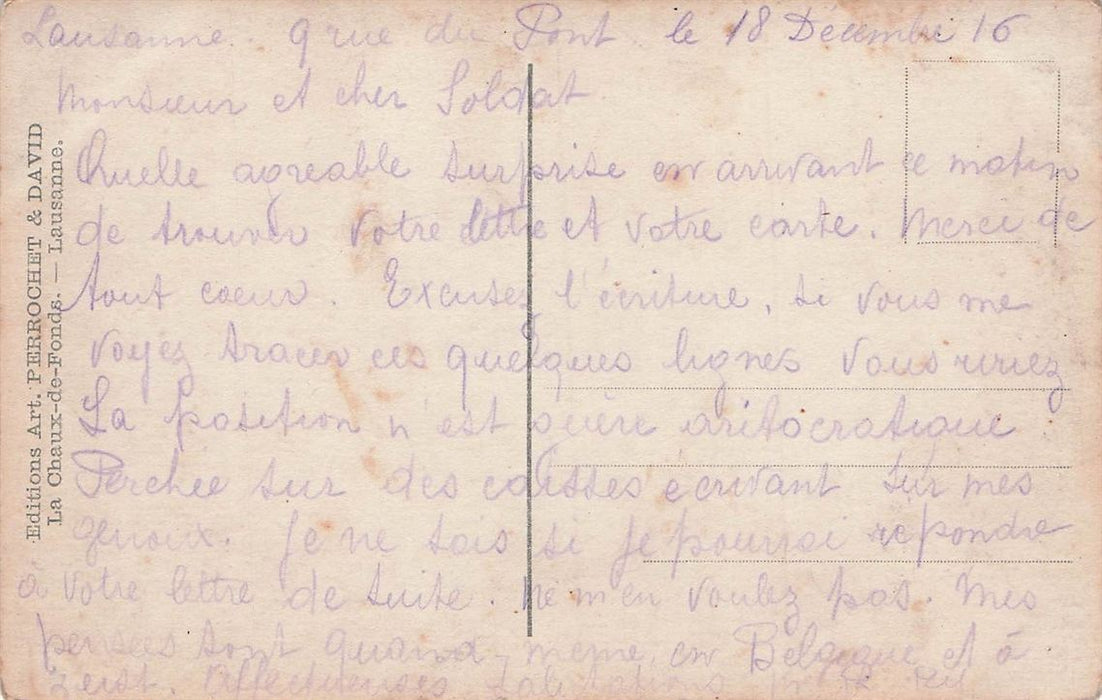 Lausanne 9 rue du Pont le 18 Décembre 16
Monsieur et cher Soldat
Quelle agréable surprise en arrivant ce matin
de trouver votre lettre et votre carte. Merci de
tout coeur. Excusez l'écriture, si vous me
voyez tracer ces quelques lignes vous ririez
La position n'est guère aritocratique
Perchée sur des caisses écrivant sur mes
genoux. Je ne sais si je pourrai repondre
à votre lettre de suite. Ne m'en voulez pas. Mes
pensées sont quand même en Belgique et à
Zeist. Affectueuses Salutations
Editions Art. PERROCHET & DAVID
La Chaux-de-Fonds. — Lausanne.